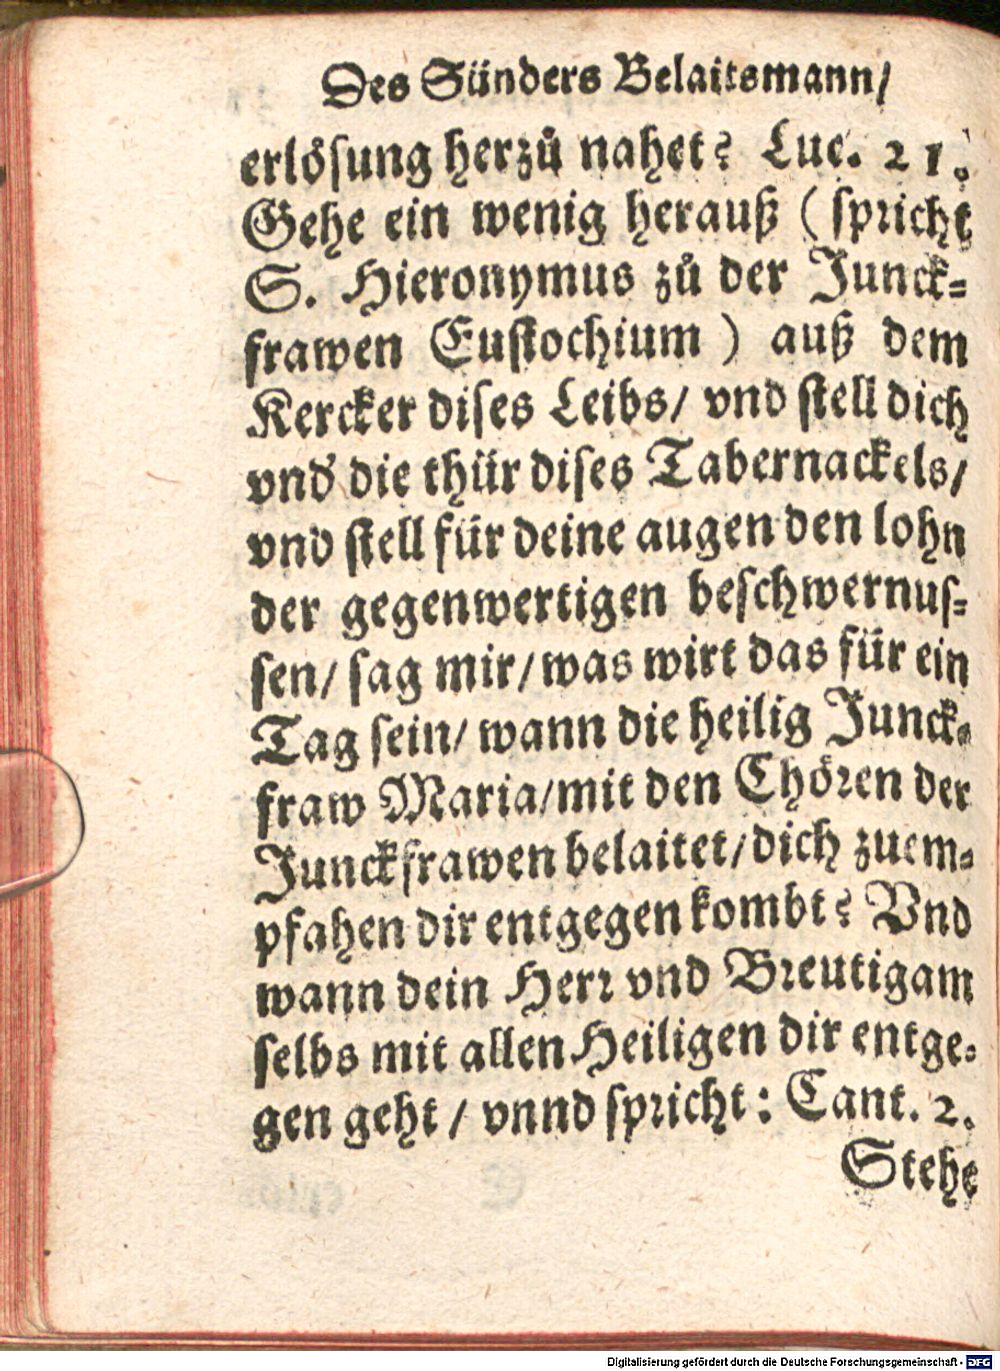 Des Sünders Belaitsmann/
erlösung herzů nahet? Luc. 21.
Gehe ein wenig herauß (spricht
S. Hieronymus zů der Junck⸗
frawen Eustochium) auß dem
Kercker dises Leibs/ vnd stell dich
vnd die thür dises Tabernackels/
vnd stell für deine augen den lohn
der gegenwertigen beschwernus⸗
sen/ sag mir/ was wirt das für ein
Tag sein/ wann die heilig Junck⸗
fraw Maria/mit den Chören der
Junckfrawen belaitet/dich zuem⸗
pfahen dir entgegen kombt? Vnd
wann dein Herr vnd Breutigam
selbs mit allen Heiligen dir entge⸗
gen geht / vnnd spricht: Cant. 2.
Stehe
Digitalisierung gefördert durch die Deutsche Forschungsgemeinschaft - DFG